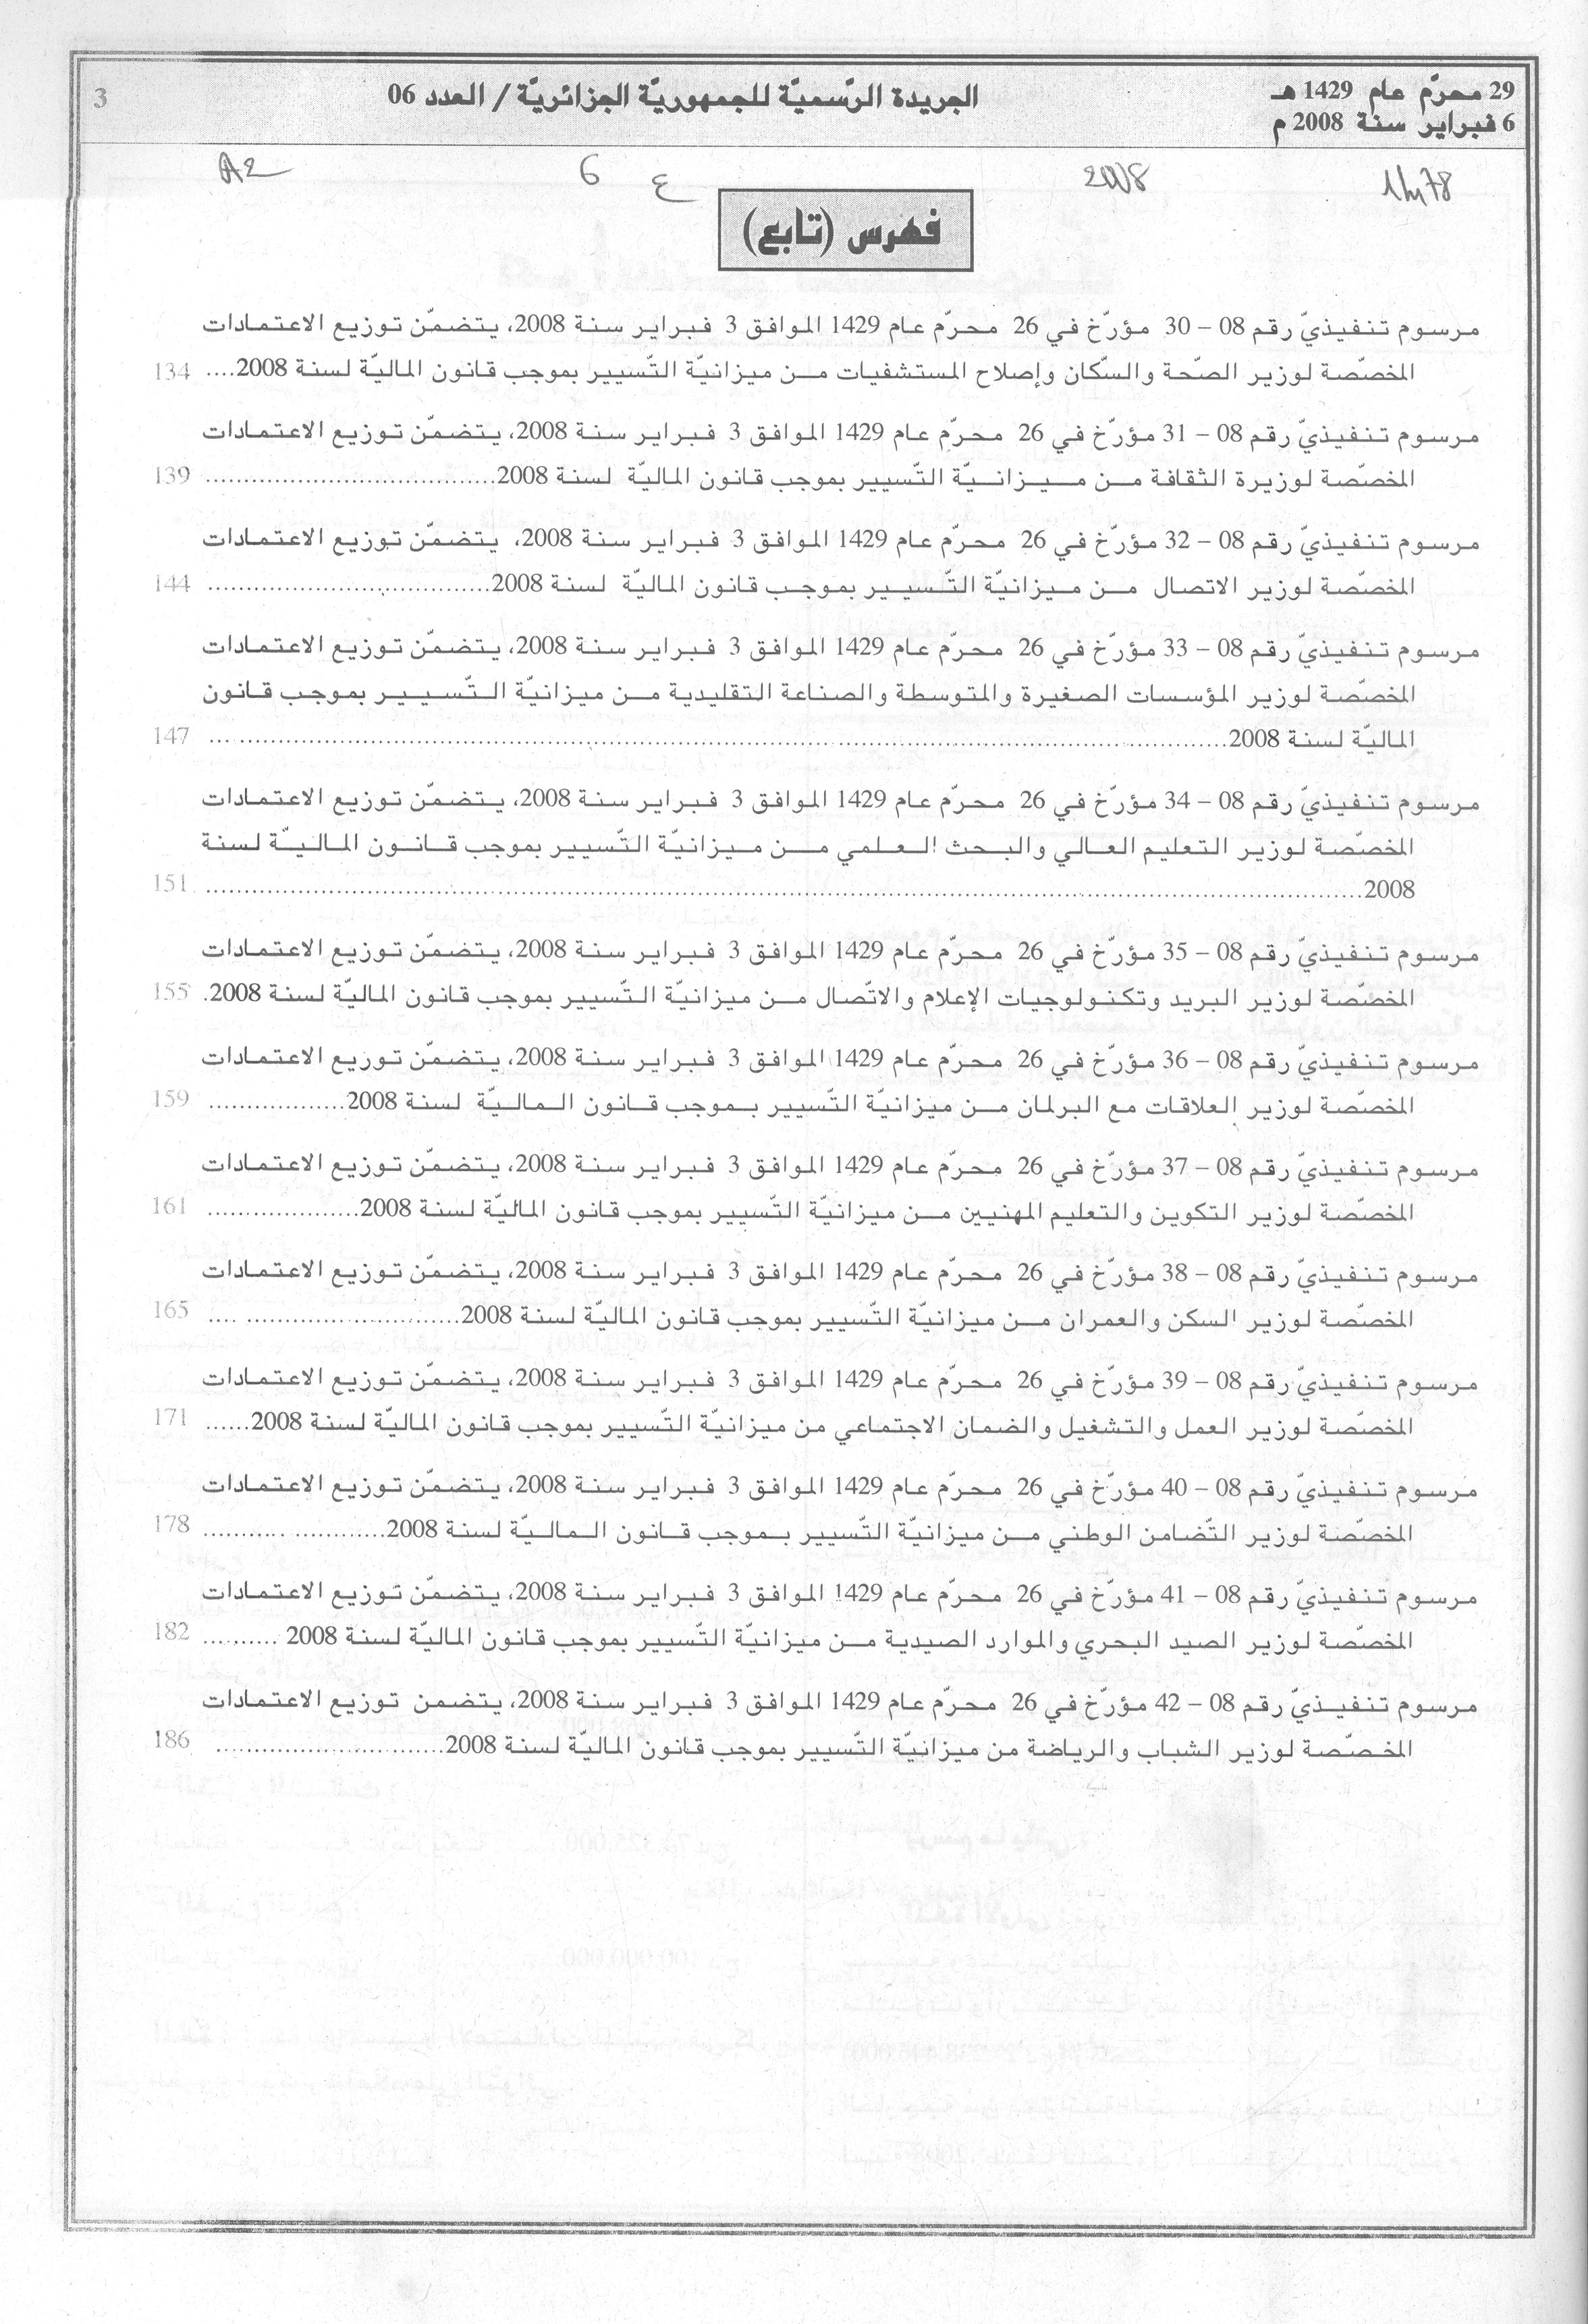 29 محرّم عام 1429 هـ
6 فبراير سنة 2008 م
الجريدة الرّسميّة للجمهوريّة الجزائريّة / العدد 06
3
2008
ع
6
A2
فهرس (تابع)
مرسوم تنفيذيّ رقم 08 – 30 مؤرّخ في 26 محرّم عام 1429 الموافق 3 فبراير سنة 2008، يتضمّن توزيع الاعتمادات
المخصّصة لوزير الصّحة والسكّان وإصلاح المستشفيات من ميزانيّة التّسيير بموجب قانون الماليّة لسنة 2008.... 134
مرسوم تنفيذيّ رقم 08 – 31 مؤرّخ في 26 محرّم عام 1429 الموافق 3 فبراير سنة 2008، يتضمّن توزيع الاعتمادات
المخصّصة لوزيرة الثقافة من ميزانيّة التّسيير بموجب قانون الماليّة لسنة 2008...................................... 139
مرسوم تنفيذيّ رقم 08 – 32 مؤرّخ في 26 محرّم عام 1429 الموافق 3 فبراير سنة 2008، يتضمّن توزيع الاعتمادات
المخصّصة لوزير الاتصال من ميزانيّة التّسيير بموجب قانون الماليّة لسنة 2008..................................... 144
مرسوم تنفيذيّ رقم 08 – 33 مؤرّخ في 26 محرّم عام 1429 الموافق 3 فبراير سنة 2008، يتضمّن توزيع الاعتمادات
المخصّصة لوزير المؤسسات الصغيرة والمتوسطة والصناعة التقليدية من ميزانيّة التّسيير بموجب قانون
الماليّة لسنة 2008........................................................................ 147
مرسوم تنفيذيّ رقم 08 – 34 مؤرّخ في 26 محرّم عام 1429 الموافق 3 فبراير سنة 2008، يتضمّن توزيع الاعتمادات
المخصّصة لوزير التعليم العالي والبحث العلمي من ميزانيّة التّسيير بموجب قانون الماليّة لسنة
2008................................................................................ 151
مرسوم تنفيذيّ رقم 08 – 35 مؤرّخ في 26 محرّم عام 1429 الموافق 3 فبراير سنة 2008، يتضمّن توزيع الاعتمادات
المخصّصة لوزير البريد وتكنولوجيات الإعلام والاتّصال من ميزانيّة التّسيير بموجب قانون الماليّة لسنة 2008. 155
مرسوم تنفيذيّ رقم 08 – 36 مؤرّخ في 26 محرّم عام 1429 الموافق 3 فبراير سنة 2008، يتضمّن توزيع الاعتمادات
المخصّصة لوزير العلاقات مع البرلمان من ميزانيّة التّسيير بموجب قانون الماليّة لسنة 2008.................. 159
مرسوم تنفيذيّ رقم 08 – 37 مؤرّخ في 26 محرّم عام 1429 الموافق 3 فبراير سنة 2008، يتضمّن توزيع الاعتمادات
المخصّصة لوزير التكوين والتعليم المهنيين من ميزانيّة التّسيير بموجب قانون الماليّة لسنة 2008.................... 161
مرسوم تنفيذيّ رقم 08 – 38 مؤرّخ في 26 محرّم عام 1429 الموافق 3 فبراير سنة 2008، يتضمّن توزيع الاعتمادات
المخصّصة لوزير السكن والعمران من ميزانيّة التّسيير بموجب قانون الماليّة لسنة 2008................................ 165
مرسوم تنفيذيّ رقم 08 – 39 مؤرّخ في 26 محرّم عام 1429 الموافق 3 فبراير سنة 2008، يتضمّن توزيع الاعتمادات
المخصّصة لوزير العمل والتشغيل والضمان الاجتماعي من ميزانيّة التّسيير بموجب قانون الماليّة لسنة 2008...... 171
مرسوم تنفيذيّ رقم 08 – 40 مؤرّخ في 26 محرّم عام 1429 الموافق 3 فبراير سنة 2008، يتضمّن توزيع الاعتمادات
المخصّصة لوزير التّضامن الوطني من ميزانيّة التّسيير بموجب قانون الماليّة لسنة 2008........................ 178
مرسوم تنفيذيّ رقم 08 – 41 مؤرّخ في 26 محرّم عام 1429 الموافق 3 فبراير سنة 2008، يتضمّن توزيع الاعتمادات
المخصّصة لوزير الصيد البحري والموارد الصيدية من ميزانيّة التّسيير بموجب قانون الماليّة لسنة 2008 .......... 182
مرسوم تنفيذيّ رقم 08 – 42 مؤرّخ في 26 محرّم عام 1429 الموافق 3 فبراير سنة 2008، يتضمن توزيع الاعتمادات
المخصّصة لوزير الشباب والرياضة من ميزانيّة التّسيير بموجب قانون الماليّة لسنة 2008.............................. 186